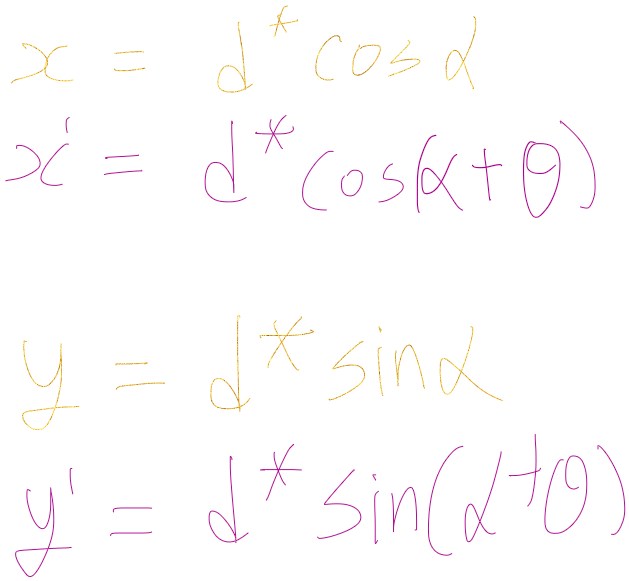 x = d* cos α
x' = d* cos(α + θ)
y = d* sin α
y' = d* sin(α + θ)